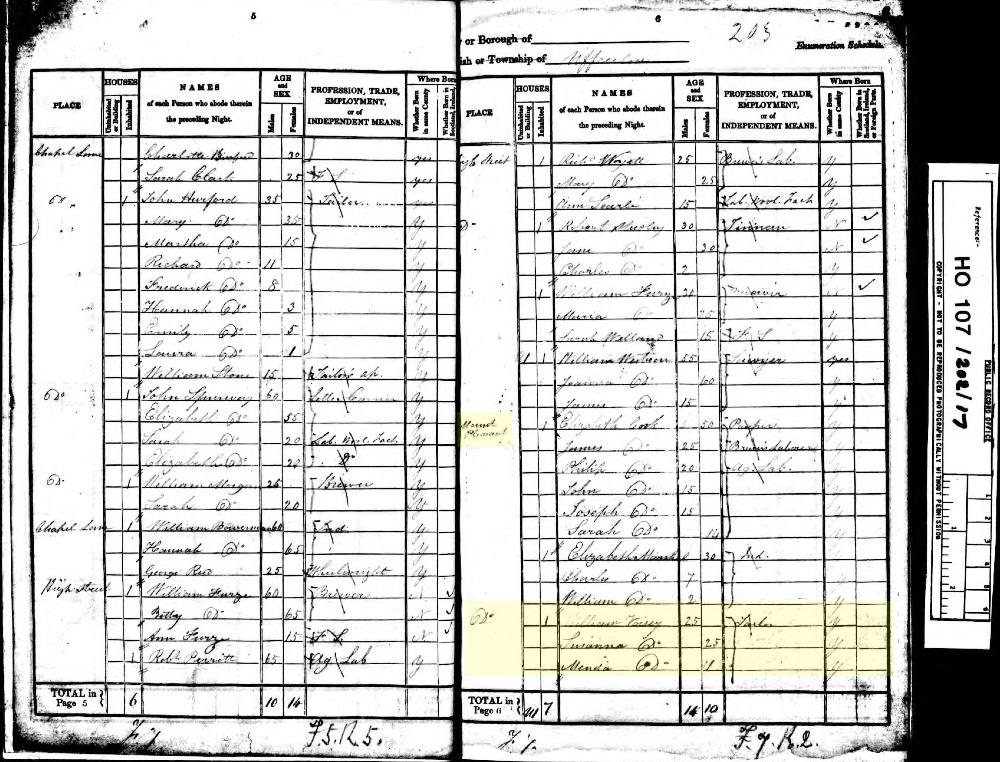 5
PLACE
HOUSES
Uninhabited or Building
Inhabited
NAMES
of each Person who abode therein
the preceding Night.
AGE
and
SEX
Males
Females
PROFESSION, TRADE,
EMPLOYMENT,
or of
INDEPENDENT MEANS.
Where Born
Whether Born in same County
Whether Born in Scotland, Ireland,
Chapel Lane Charlotte 30 yes
Sarah Clark 25 F S yes
Do 1 John Hereford 35 Tailor yes
Mary Do 35 y
Martha Do 15 y
Richard Do 11 y
Frederick Do 8 y
Hannah Do 3 y
Emily Do 5 y
Laura Do 1 y
William Stone 15 Tailor's ap. y
Do 1 John Spurway 60 Letter Carrier y
Elizabeth Do 55 y
Sarah Do 20 Lab. Wool. Fact. y
Elizabeth Do 20 Do y
Do 1 William 25 Brewer y
Sarah Do 20 y
Chapel Lane 1 William Bowerman 60 Ind y
Hannah Do 65 y
George 25 Wheelwright y
High Street 1 William Furze 60 Brewer N
Betty Do 65 N
Ann Furze 15 F S N
1 Robt Perritt 65 Ag Lab y
TOTAL in Page 5 6 10 14
F.5.R.5.
6
or Borough of
ish or Township of Uffculme
203
Enumeration Schedule.
PLACE
HOUSES
Uninhabited or Building
Inhabited
NAMES
of each Person who abode therein
the preceding Night.
AGE
and
SEX
Males
Females
PROFESSION, TRADE,
EMPLOYMENT,
or of
INDEPENDENT MEANS.
Where Born
Whether Born in same County
Whether Born in Scotland, Ireland, or Foreign Parts.
Street 1 Richd Wyatt 25 Lab. y
Mary Do 25 y
Ann Searle 15 Lab. Wool. Fact y
Do 1 Robert 30 Tinman N
Jane Do 30 N
Charles Do 2 y
1 William Furze 30 N
Maria Do 25 y
Sarah 15 F S y
1 1 William Western 55 Sawyer yes
Joanna Do 60 y
James Do 15 y
Mount Pleasant 1 Elizabeth Cook 50 Pauper y
James Do 25 y
Philip Do 20 Ag. Lab. y
John Do 15 y
Joseph Do 15 y
Sarah Do 14 y
1 Elizabeth Marsh 30 Ind. y
Charles Do 7 y
William Do 2 y
Do 1 William Voisey 25 Tailor y
Susanna Do 25 y
Do 1 y
TOTAL in Page 6 7 14 10
F.7.R.2.
Reference:-
HO 107/202/17
PUBLIC RECORD OFFICE
COPYRIGHT - NOT TO BE REPRODUCED PHOTOGRAPHICALLY WITHOUT PERMISSION